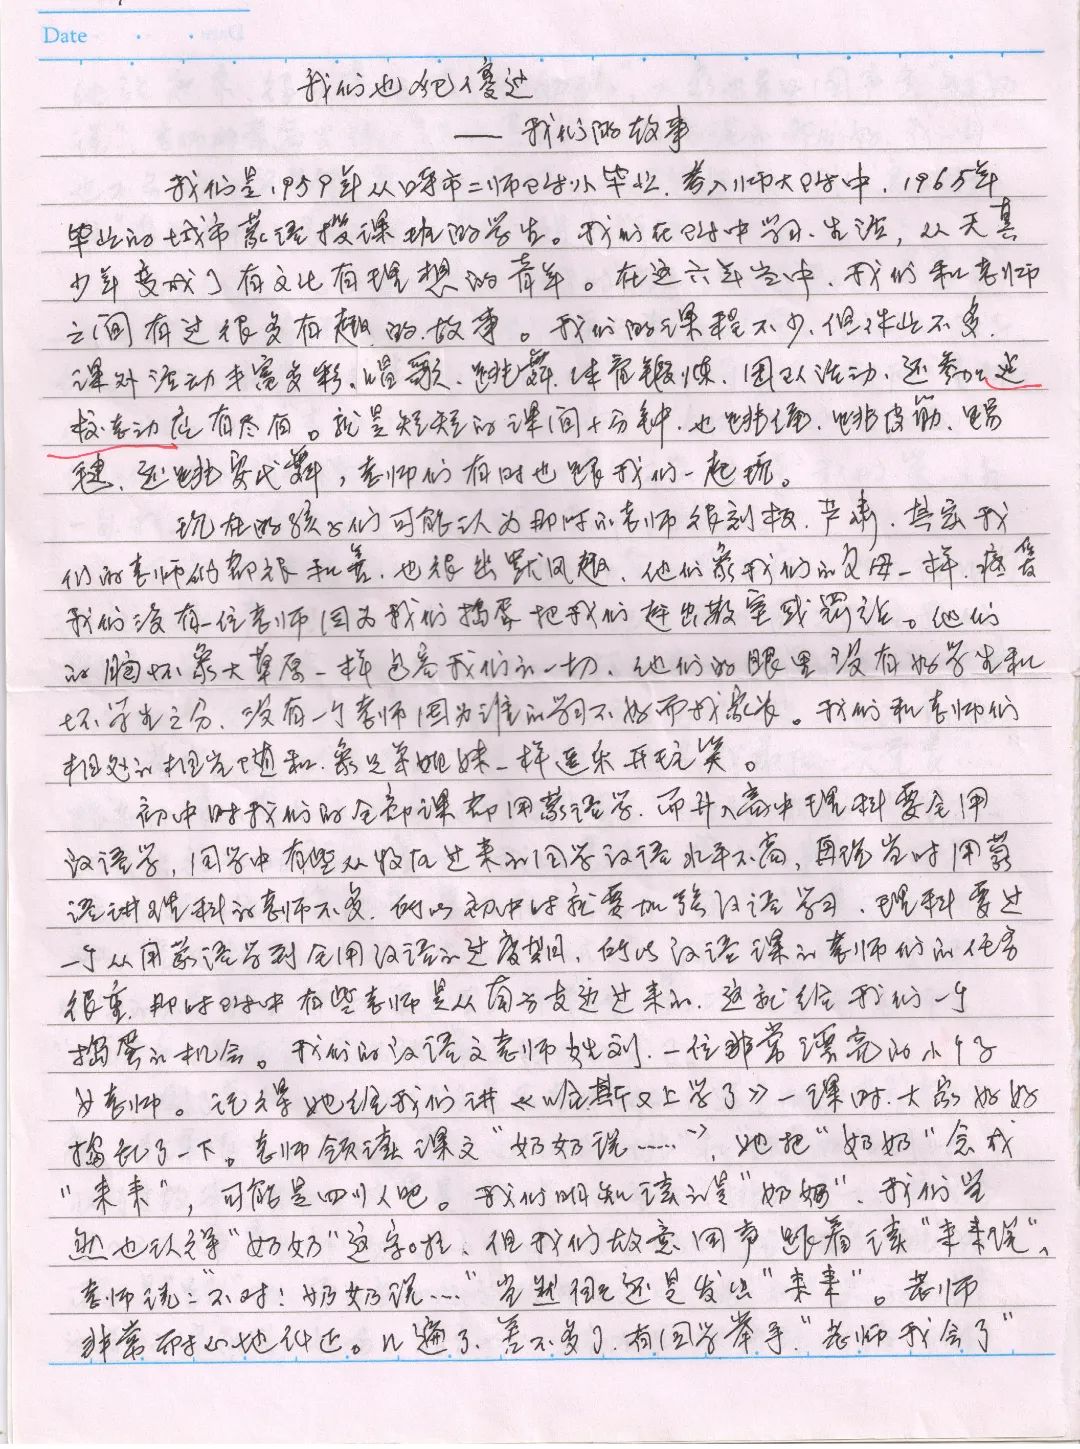 Date
我们也犯傻过
—— 我们的故事
我们是1959年从呼市二师附小毕业、考入师大附中、1965年
毕业的城市蒙语授课班的学生。我们在附中学习、生活，从天真
少年变成了有文化有理想的青年。在这六年当中、我们和老师
之间有过很多有趣的故事。我们的课程不少、但作业不多、
课外活动丰富多彩、唱歌、跳舞、体育锻炼、团队活动、还参加
校劳动应有尽有。就是短短的课间十分钟、也跳绳、跳皮筋、踢
毽、还跳安代舞，老师们有时也跟我们一起玩。
现在的孩子们可能认为那时的老师很刻板、严肃、其实我
们的老师们都很和善、也很幽默风趣、他们象我们的父母一样、疼爱
我们没有一位老师因为我们捣蛋把我们赶出教室或罚站。他们
的胸怀象大草原一样包容我们的一切、他们的眼里没有好学生和
坏学生之分、没有一个老师因为谁的学习不好而找家长。我们和老师们
相处的相当随和、象兄弟姐妹一样逗乐开玩笑。
初中时我们的全部课都用蒙语学、而升入高中理科要全用
汉语学，同学中有些从牧区过来的同学汉语水平不高，再说当时用蒙
语讲理科的老师不多、所以初中时就要加强汉语学习、理科要过
一个从用蒙语学到全用汉语的过度期、所以汉语课的老师们的任务
很重、那时附中有些老师是从南方支边过来的、这就给我们一个
捣蛋的机会。我们的汉语文老师姓刘、一位非常漂亮的小个子
女老师。记得她给我们讲《哈斯又上学了》一课时、大家好好
捣乱了一下。老师领读课文“奶奶说……”，她把“奶奶”念成
“来来”，可能是四川人吧。我们明知读的是“奶奶”、我们当
然也认得“奶奶”这字哇、但我们故意同声跟着读“来来说”、
老师说：“不对！奶奶说……”当然还是发出“来来”。老师
非常耐心地纠正。几遍了、差不多了、有同学举手“老师我会了”